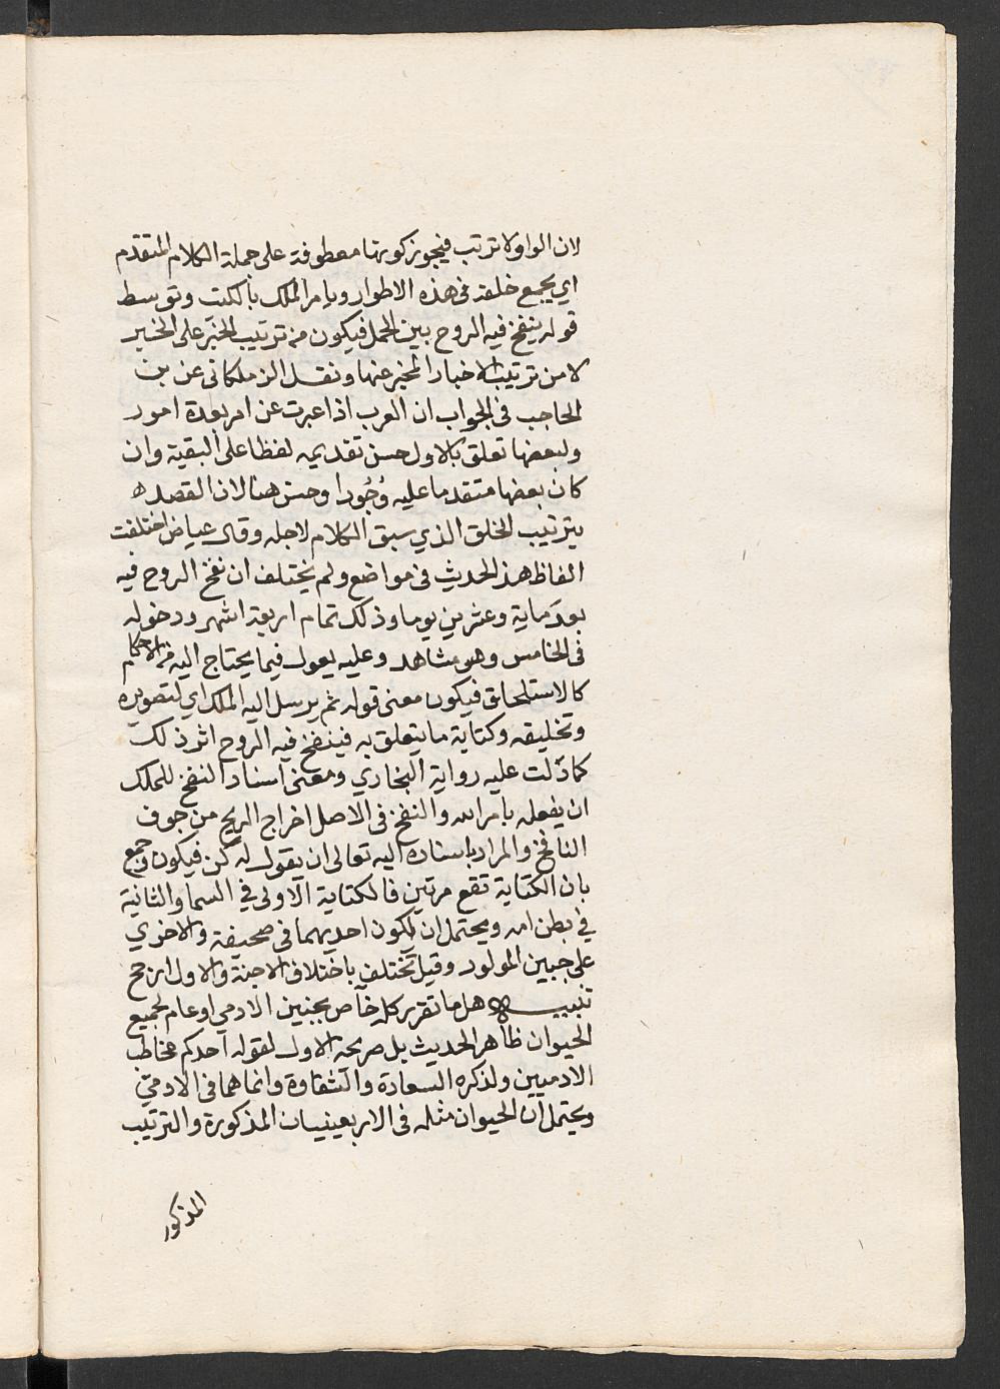 لان الواو لا ترتب فيجوز كونها معطوفة على جملة الكلام المتقدم
اي يجمع خلقه في هذه الاطوار ويامر الملك بالكتب وتوسط
قوله ينفخ فيه الروح بين الجمل فيكون من ترتيب الخبر على الخبر
لا من ترتيب الاخبار المخبر عنها ونقل الزملكاني عن بن
الحاجب في الجواب ان العرب اذا عبرت عن امر بعدة امور
ولبعضها تعلق بالاول حسن تقديمه لفظا على البقية وان
كان بعضها متقدما عليه وجودا وحسن هنا لان القصد
بترتيب الخلق الذي سبق الكلام لاجله وقال عياض اختلفت
الفاظ هذ الحديث في مواضع ولم يختلف ان نفخ الروح فيه
بعد ماية وعشرين يوما وذلك تمام اربعة اشهر ودخوله
في الخامس وهو مشاهد وعليه يعول فيما يحتاج اليه من الاحكام
كالاستلحاق فيكون معنى قوله ثم يرسل اليه الملك اي لتصويره
وتخليقه وكتاية ما يتعلق به فينفخ فيه الروح اثر ذلك
كما دلت عليه رواية البخاري ومعنى اسناد النفخ للملك
ان يفعله بامر الله والنفخ في الاصل اخراج الريح من جوف
النافخ والمراد باسناده اليه تعالى ان يقول له كن فيكون وجمع
بان الكتاية تقع مرتين فالكتاية الاولى في السما والثانية
في بطن امه ويحتمل ان تكون احديهما في صحيفة والاخري
على جبين المولود وقيل تختلف باختلاف الاجنة والاول ارجح
تنبيه هل ما تقرر كله خاص بجنين الادمي او عام لجميع
الحيوان ظاهر الحديث بل صريحه الاول لقوله احدكم مخاطب
الادميين ولذكره السعادة والشقاوة وانما هما في الادمي
ويحتمل ان الحيوان مثله في الاربعينيات المذكورة والترتيب
المذكور